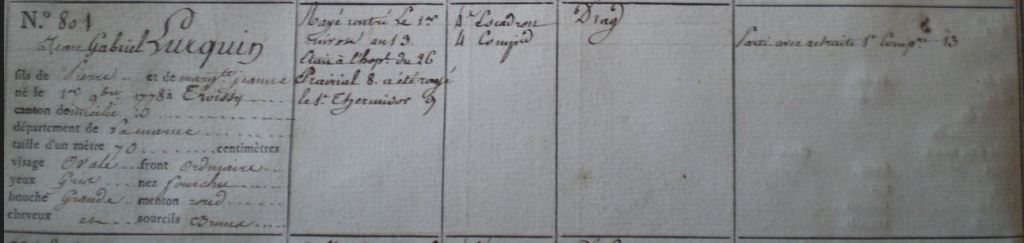 N.º 801
Jean Gabriel Lurquin
fils de Pierre et de margte jeanne
né le 1er 9bre 1778 à Troissy
canton domicilié id
département de La marne
taille d'un mètre 70 centimètres
visage Ovale front ordinaire
yeux Gris nez fourchu
bouche Grande menton rond
cheveux et sourcils Bruns
Rayé rentré le 1er
nivose an 13
Prairial 8. a été rayé
le 1er Thermidor 9
4e Escadron
4 Compie
Drag
Parti avec retraite 1er Compre 13